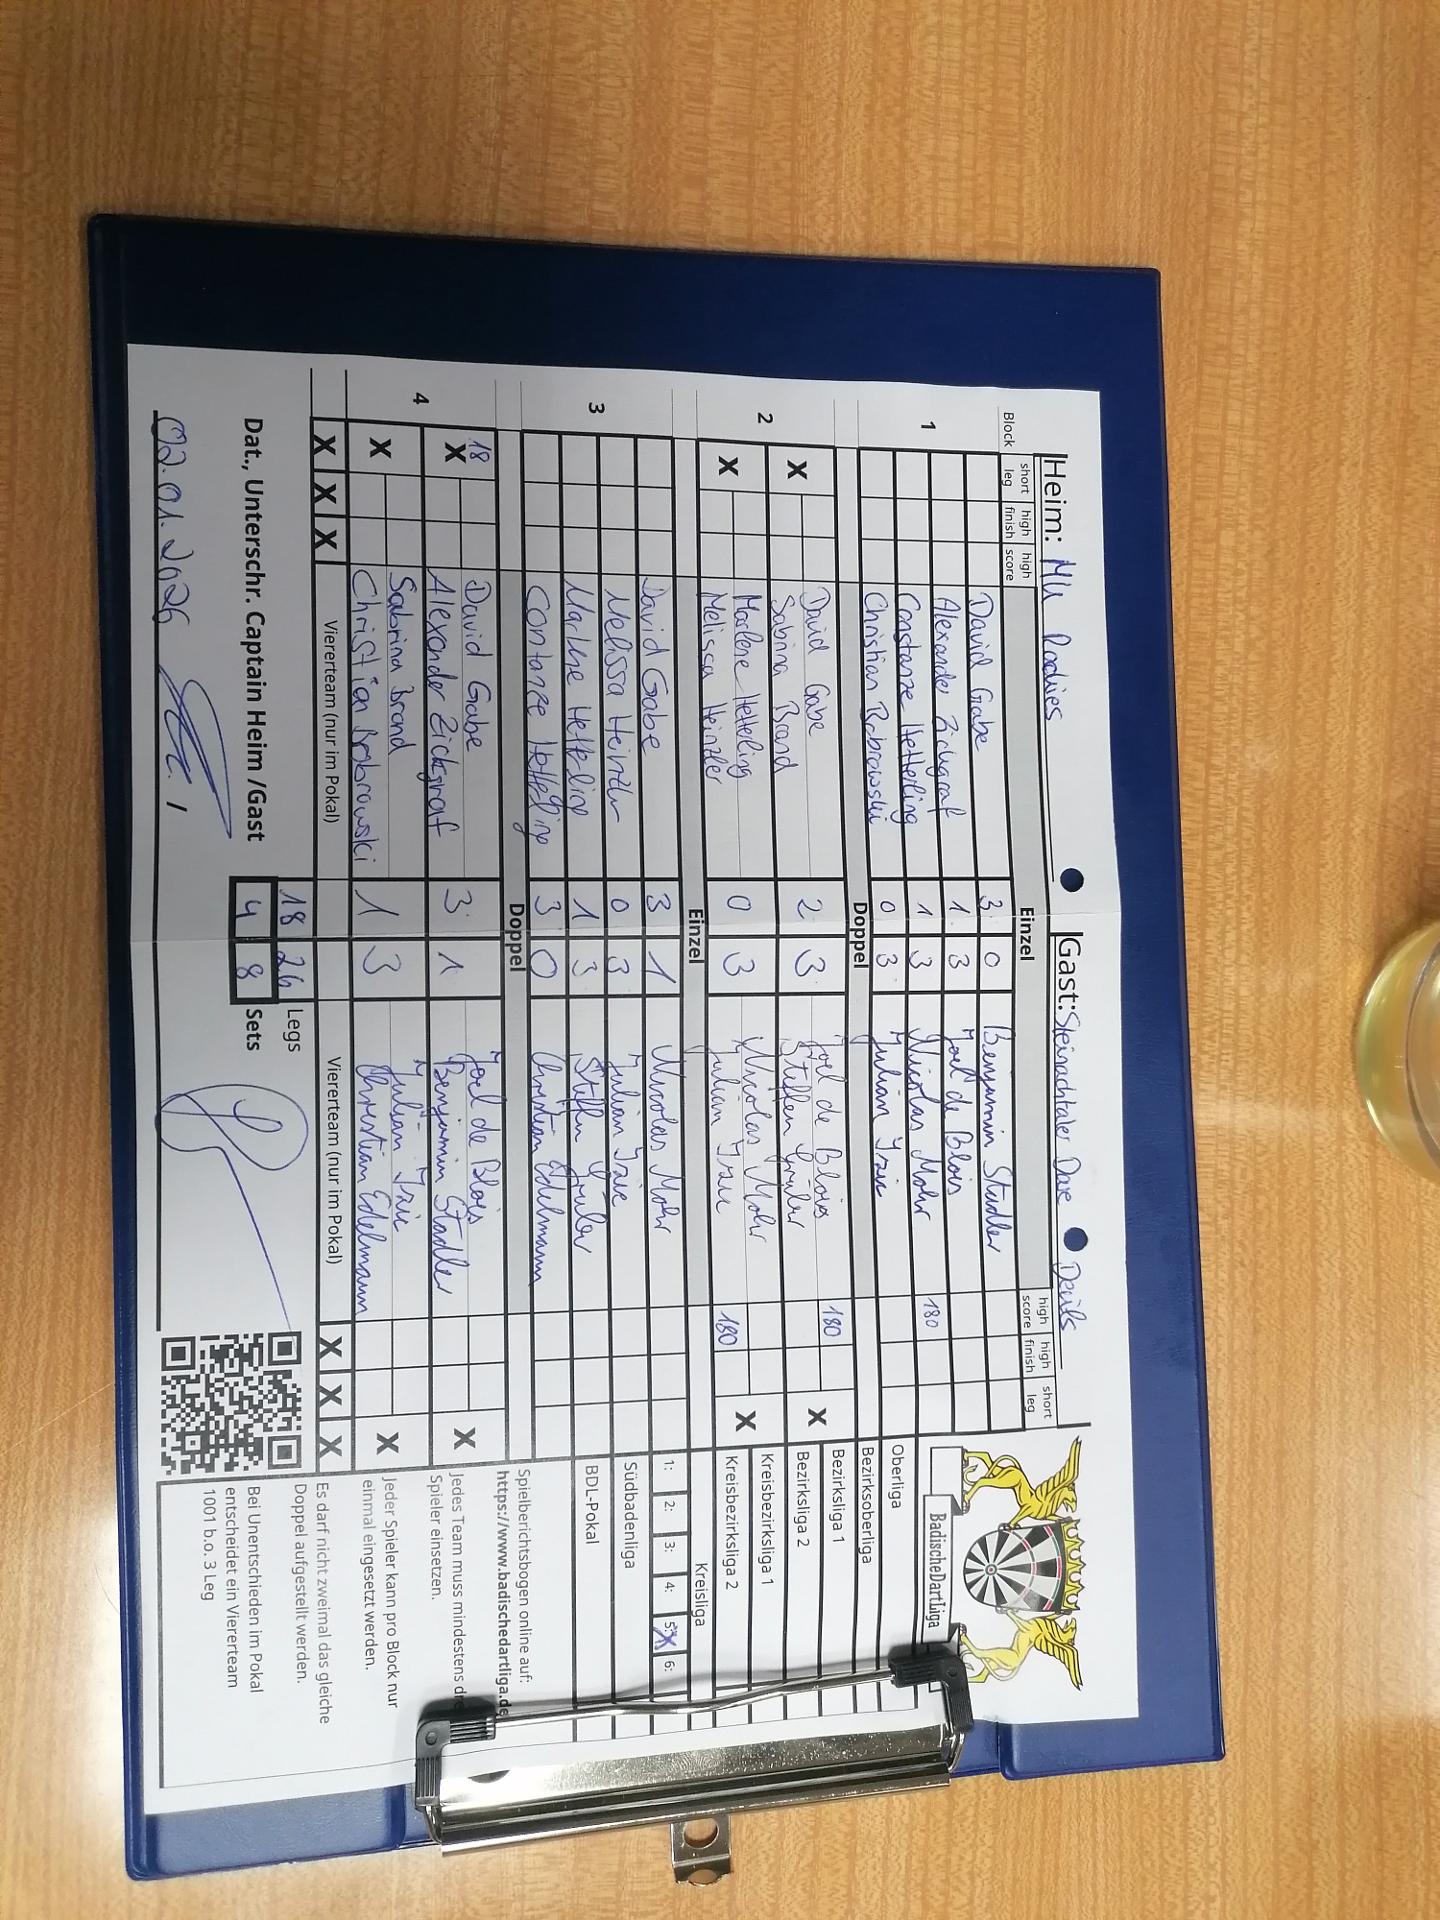 Heim: Mu Rookies Gast: Steinachtaler Dare Devils
Block short leg high finish high score Einzel high score high finish short leg
1
David Gabe 3 0 Benjamin Stadler
Alexander Zickgraf 1 3 Joel de Blois
Constanze Hetterling 1 3 Nicolas Mohr 180
Christian Bobrowski 0 3 Julian Isic
Doppel
2
X David Gabe 2 3 Joel de Blois 180 X
Sabrina Brand Steffen Gruber
X Marlene Hetterling 0 3 Nicolas Mohr X
Melissa Heinzler Julian 180
Einzel
3
David Gabe 3 1 Nicolas Mohr
Melissa Heinzler 0 3 Julian
Marlene Hetterling 1 3 Steffen Gruber
Contanze Hetterling 3 0 Christian Edelmann
Doppel
4
18 X David Gabe 3 1 Joel de Blois X
Alexander Zickgraf Benjamin Stadler
X Sabrina Brand 1 3 Julian X
Christian Bobrowski Christian Edelmann
X X X Viererteam (nur im Pokal) Viererteam (nur im Pokal) X X X
18 26 Legs
Dat., Unterschr. Captain Heim /Gast 4 8 Sets
02.01.2026
BadischeDartLiga
Oberliga
Bezirksoberliga
Bezirksliga 1
Bezirksliga 2
Kreisbezirksliga 1
Kreisbezirksliga 2
Kreisliga
1: 2: 3: 4: 5: X 6:
Südbadenliga
BDL-Pokal
Spielberichtsbogen online auf:
https://www.badischedartliga.de
Jedes Team muss mindestens
Spieler einsetzen.
Jeder Spieler kann pro Block nur
einmal eingesetzt werden.
Es darf nicht zweimal das gleiche
Doppel aufgestellt werden.
Bei Unentschieden im Pokal
entscheidet ein Viererteam
1001 b.o. 3 Leg